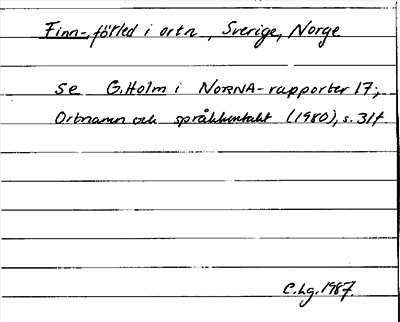 Finn-, förled i ortn, Sverige, Norge
se G. Holm i NORNA-rapporter 17;
Ortnamn och språkkontakt (1980), s. 31f.
C.Lg. 1987.